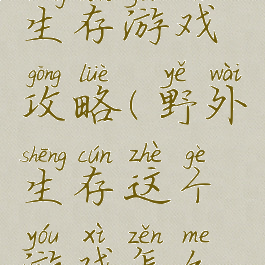 生存游戏
gōng lüè yě wài
攻略(野外
shēng cún zhè gè
生存这个
yóu xì zěn me
游戏怎么